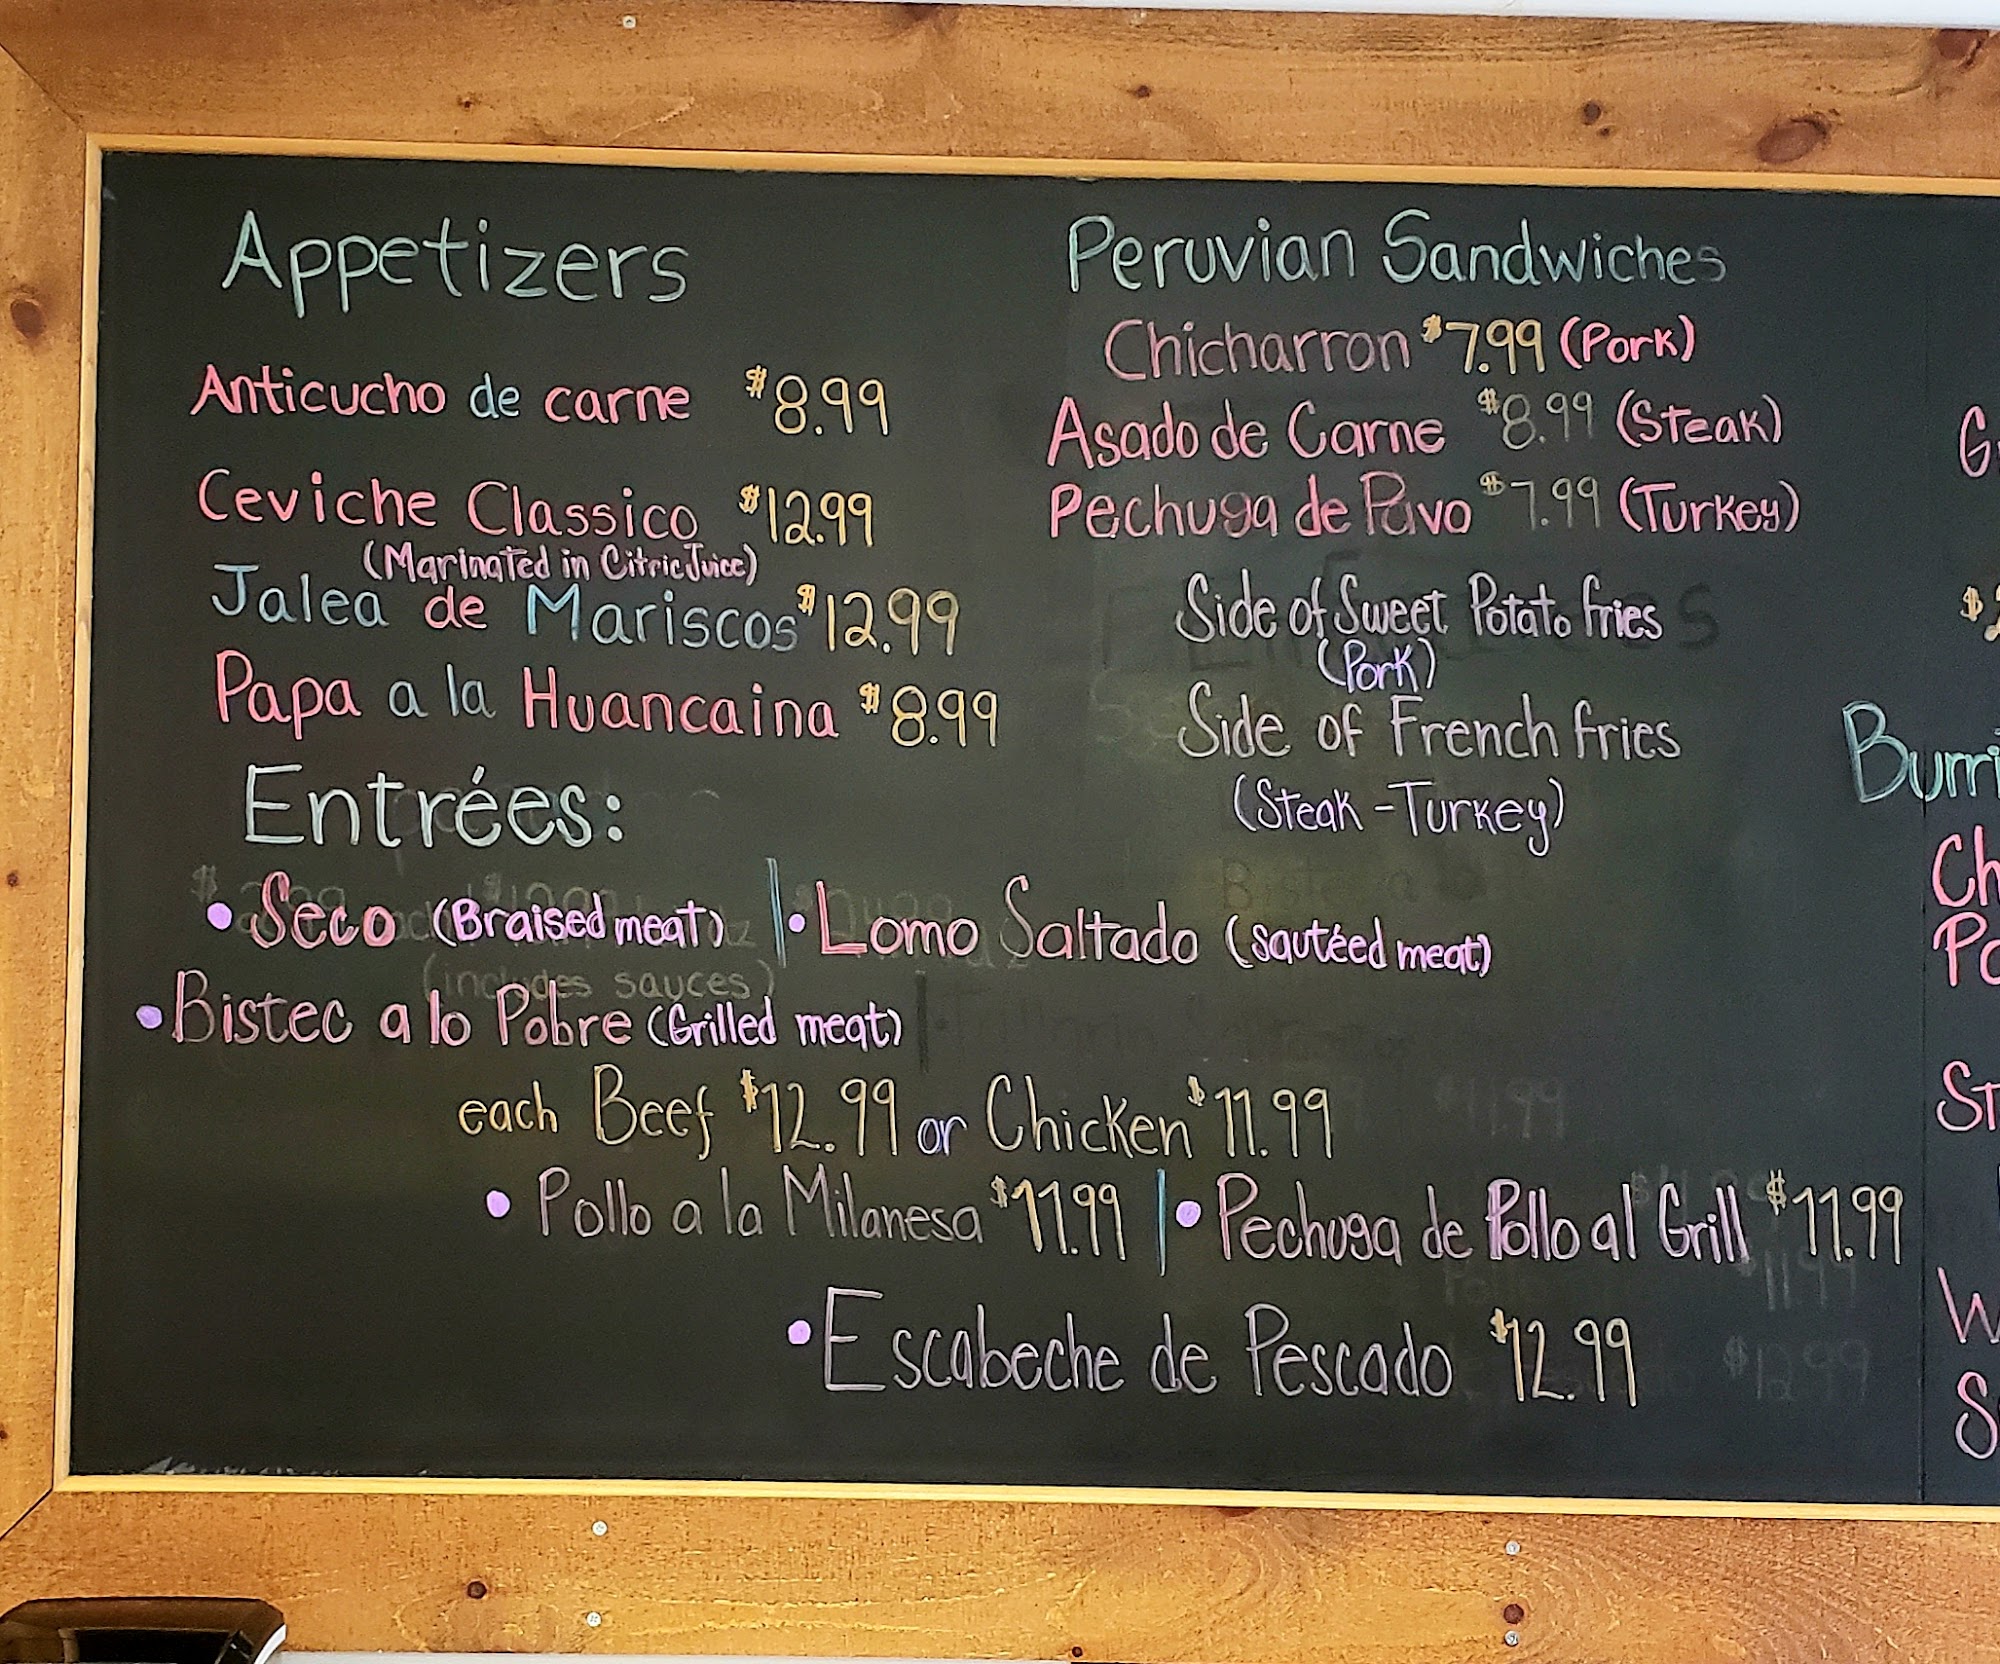 Appetizers
Anticucho de carne $8.99
Ceviche Classico $12.99
(Marinated in Citric Juice)
Jalea de Mariscos $12.99
Papa a la Huancaina $8.99
Peruvian Sandwiches
Chicharron $7.99 (Pork)
Asado de Carne $8.99 (Steak)
Pechuga de Pavo $7.99 (Turkey)
Side of Sweet Potato fries
(Pork)
Side of French fries
(Steak - Turkey)
Entrées:
• Seco (Braised meat) | • Lomo Saltado (sautéed meat)
(includes sauces)
• Bistec a lo Pobre (Grilled meat)
each Beef $12.99 or Chicken $11.99
• Pollo a la Milanesa $11.99 | • Pechuga de Pollo al Grill $11.99
• Escabeche de Pescado $12.99
$11.99
$11.99
$12.99
Burri
Ch
Po
St
W
S